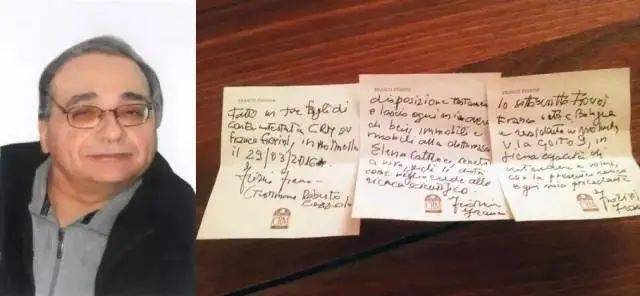 FRANCO FIORINI
Fatto in tre fogli di
carta intestata CRM su
Franco Fiorini, in Molinella
il 29/03/201
Fiorini Franco
Testimone Roberto
FRANCO FIORINI
disposizione
e lascio ogni mio avere
di beni immobili e
mobili alla dottoressa
Elena Cattaneo, senatrice
a vita, perché li doti
come meglio crede alla
ricerca scientifica
Fiorini
Franco
FRANCO FIORINI
Io sottoscritto Fiorini
Franco nato a Bologna
e residente in Molinella
v. la Goito 9, in
piena
intendere e volere,
con la presente revoco
ogni mia precedente
Fiorini
Franco
CRM
CRM
CRM